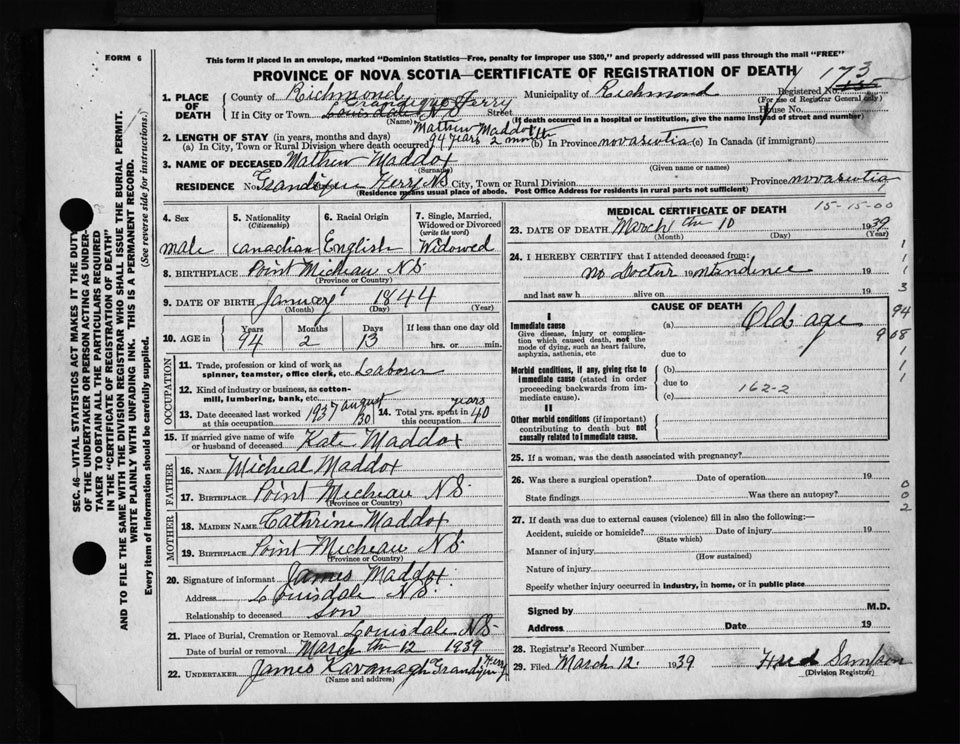 FORM 6
This form if placed in an envelope, marked "Dominion Statistics—Free, penalty for improper use $300," and properly addressed will pass through the mail "FREE"
PROVINCE OF NOVA SCOTIA—CERTIFICATE OF REGISTRATION OF DEATH
173
Registered No.
(For use of Registrar General only)
1. PLACE OF DEATH
County of Richmond Municipality of Richmond
Grandique Ferry
If in City or Town Louisdale N S Street House No.
(Name) (If death occurred in a hospital or institution, give the name instead of street and number)
Mathew Maddox
2. LENGTH OF STAY (in years, months and days)
(a) In City, Town or Rural Division where death occurred 94 years 2 month (b) In Province novascotia (c) In Canada (if immigrant)
3. NAME OF DECEASED Mathew Maddox
(Surname) (Given name or names)
RESIDENCE No. Grandique Ferry N S City, Town or Rural Division Province novascotia
(Residence means usual place of abode. Post Office Address for residents in rural parts not sufficient)
4. Sex male
5. Nationality (Citizenship) Canadian
6. Racial Origin English
7. Single, Married, Widowed or Divorced (write the word) Widowed
8. BIRTHPLACE Point Micheau N S
(Province or Country)
9. DATE OF BIRTH January 1844
(Month) (Day) (Year)
10. AGE in Years 94 Months 2 Days 13 If less than one day old hrs. or min.
OCCUPATION
11. Trade, profession or kind of work as spinner, teamster, office clerk, etc. Laborer
12. Kind of industry or business, as cotton-mill, lumbering, bank, etc.
13. Date deceased last worked at this occupation 1937 august 30
14. Total yrs. spent in this occupation 40 years
15. If married give name of wife or husband of deceased Kate Maddox
FATHER
16. NAME Micheal Maddox
17. BIRTHPLACE Point Micheau N S
(Province or Country)
MOTHER
18. MAIDEN NAME Cathrine Maddox
19. BIRTHPLACE Point Micheau N S
(Province or Country)
20. Signature of informant James Maddox
Address Louisdale N S.
Relationship to deceased Son
21. Place of Burial, Cremation or Removal Louisdale N S
Date of burial or removal March th 12 1939
22. UNDERTAKER James Kavanagh Grandique Ferry
(Name and address)
MEDICAL CERTIFICATE OF DEATH
15-15-00
23. DATE OF DEATH March th 10 1939
(Month) (Day) (Year)
24. I HEREBY CERTIFY that I attended deceased from:
no Doctor 19
and last saw h alive on 19
1
1
1
3
CAUSE OF DEATH
I
Immediate cause
Give disease, injury or complication which caused death, not the mode of dying, such as heart failure, asphyxia, asthenia, etc
(a) Old age
due to
Morbid conditions, if any, giving rise to immediate cause (stated in order proceeding backwards from immediate cause).
(b)
due to
(c) 162-2
II
Other morbid conditions (if important) contributing to death but not causally related to immediate cause.
94
908
1
1
1
25. If a woman, was the death associated with pregnancy?
26. Was there a surgical operation? Date of operation 19
State findings Was there an autopsy?
0
0
2
27. If death was due to external causes (violence) fill in also the following:—
Accident, suicide or homicide? Date of injury 19
(State which)
Manner of injury
(How sustained)
Nature of injury
Specify whether injury occurred in industry, in home, or in public place
Signed by M.D.
Address Date 19
28. Registrar's Record Number
29. Filed March 12. 1939 Sampson
(Division Registrar)
SEC. 46—VITAL STATISTICS ACT MAKES IT THE DUTY
OF THE UNDERTAKER OR PERSON ACTING AS UNDER-
TAKER TO OBTAIN ALL THE PARTICULARS REQUIRED
IN THE "CERTIFICATE OF REGISTRATION OF DEATH"
AND TO FILE THE SAME WITH THE DIVISION REGISTRAR WHO SHALL ISSUE THE BURIAL PERMIT.
WRITE PLAINLY WITH UNFADING INK. THIS IS A PERMANENT RECORD.
Every item of information should be carefully supplied. (See reverse side for instructions.)